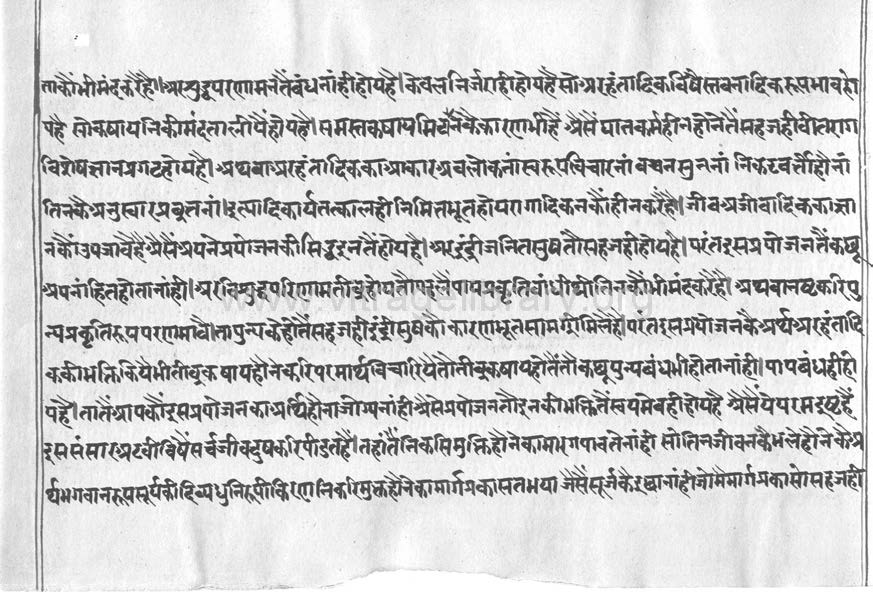 ताकौंभीमंदकरैहै।।अरशुद्धपरणामनतैंबंधनांहीहोयहै।केवलनिर्जराहीहोयहैसोअरहंतादिकविषैस्तवनादिकरूपभावहो
यहै सोकषायनिकीमंदतालीयैंहोयहै।समस्तकषायमिटनैकेकारणभीहैं अैसैं घातकर्महीनहोनेतैंसहजहीवीतराग
विशेषज्ञानप्रगटहोयहै। अथवाअरहंतादिकका आकार अवलोकनां स्वरूपविचारनां वचनसुननां निकटवर्त्तीहोनां
तिनकैअनुस्वारप्रवृतनां।इत्यादिकार्यतत्कालहीनिमित्तभूतहोयरागादिकनकौंहीनकरैहै।जीवअजीवादिकका ज्ञा
नकौंउपजावैहैअैसैंअपनेप्रयोजनकीसिद्धइनतैंहोयहै। अरइंद्रीजनितसुषतौसहजहीहोयहै। परंतइसप्रयोजनतैंकछू
अपनांहितहोतानांही।अरविशुद्धपरिणामतीव्रहोयतौपहलैंपापप्रकृतिबांधीथीतिनकौंभीमंदकरैहै। अथवानष्टकरिपु
न्यप्रकृतिरूपपरणमावै।तापुन्यकेहीतैंसहजहीइंद्रीसुषकौकारणभूतसामग्रीमिलैहै।परंतइसप्रयोजनकैअर्थअरहंतादि
ककीभक्तिकियेभीतीव्रकषायहोनेकरिपरमार्थविचारियेतौतीव्रकषायहोतैंतौकछूपुन्यबंधभीहोतानांही।पापबंधहीहो
यहै।तातैंआपकौंइसप्रयोजनकाअर्थिहोनाजोग्यनांहीअैसेप्रयोजनतौइनकीभक्तितैंस्वयमेवहीहोयहै अैसैंयेपरमइष्टहैं
इससंसारअटवीविषैंसर्वजीवदुषकरिपीडतहैं।तहांतैंनिकसिमुक्तिहोनेकामारगपावतेनांहीसोतिनजीवनकेभलेहोनेकेअ
र्थभगवानरूपसूर्यकीदिव्यधुनिरूपीकिरणनिकरिमुक्तहोनेकामार्गप्रकासतभया जैसैंसूर्जकैइछानांहीजोमैंमार्गप्रकासोसहजही
www.vitragelibrary.org